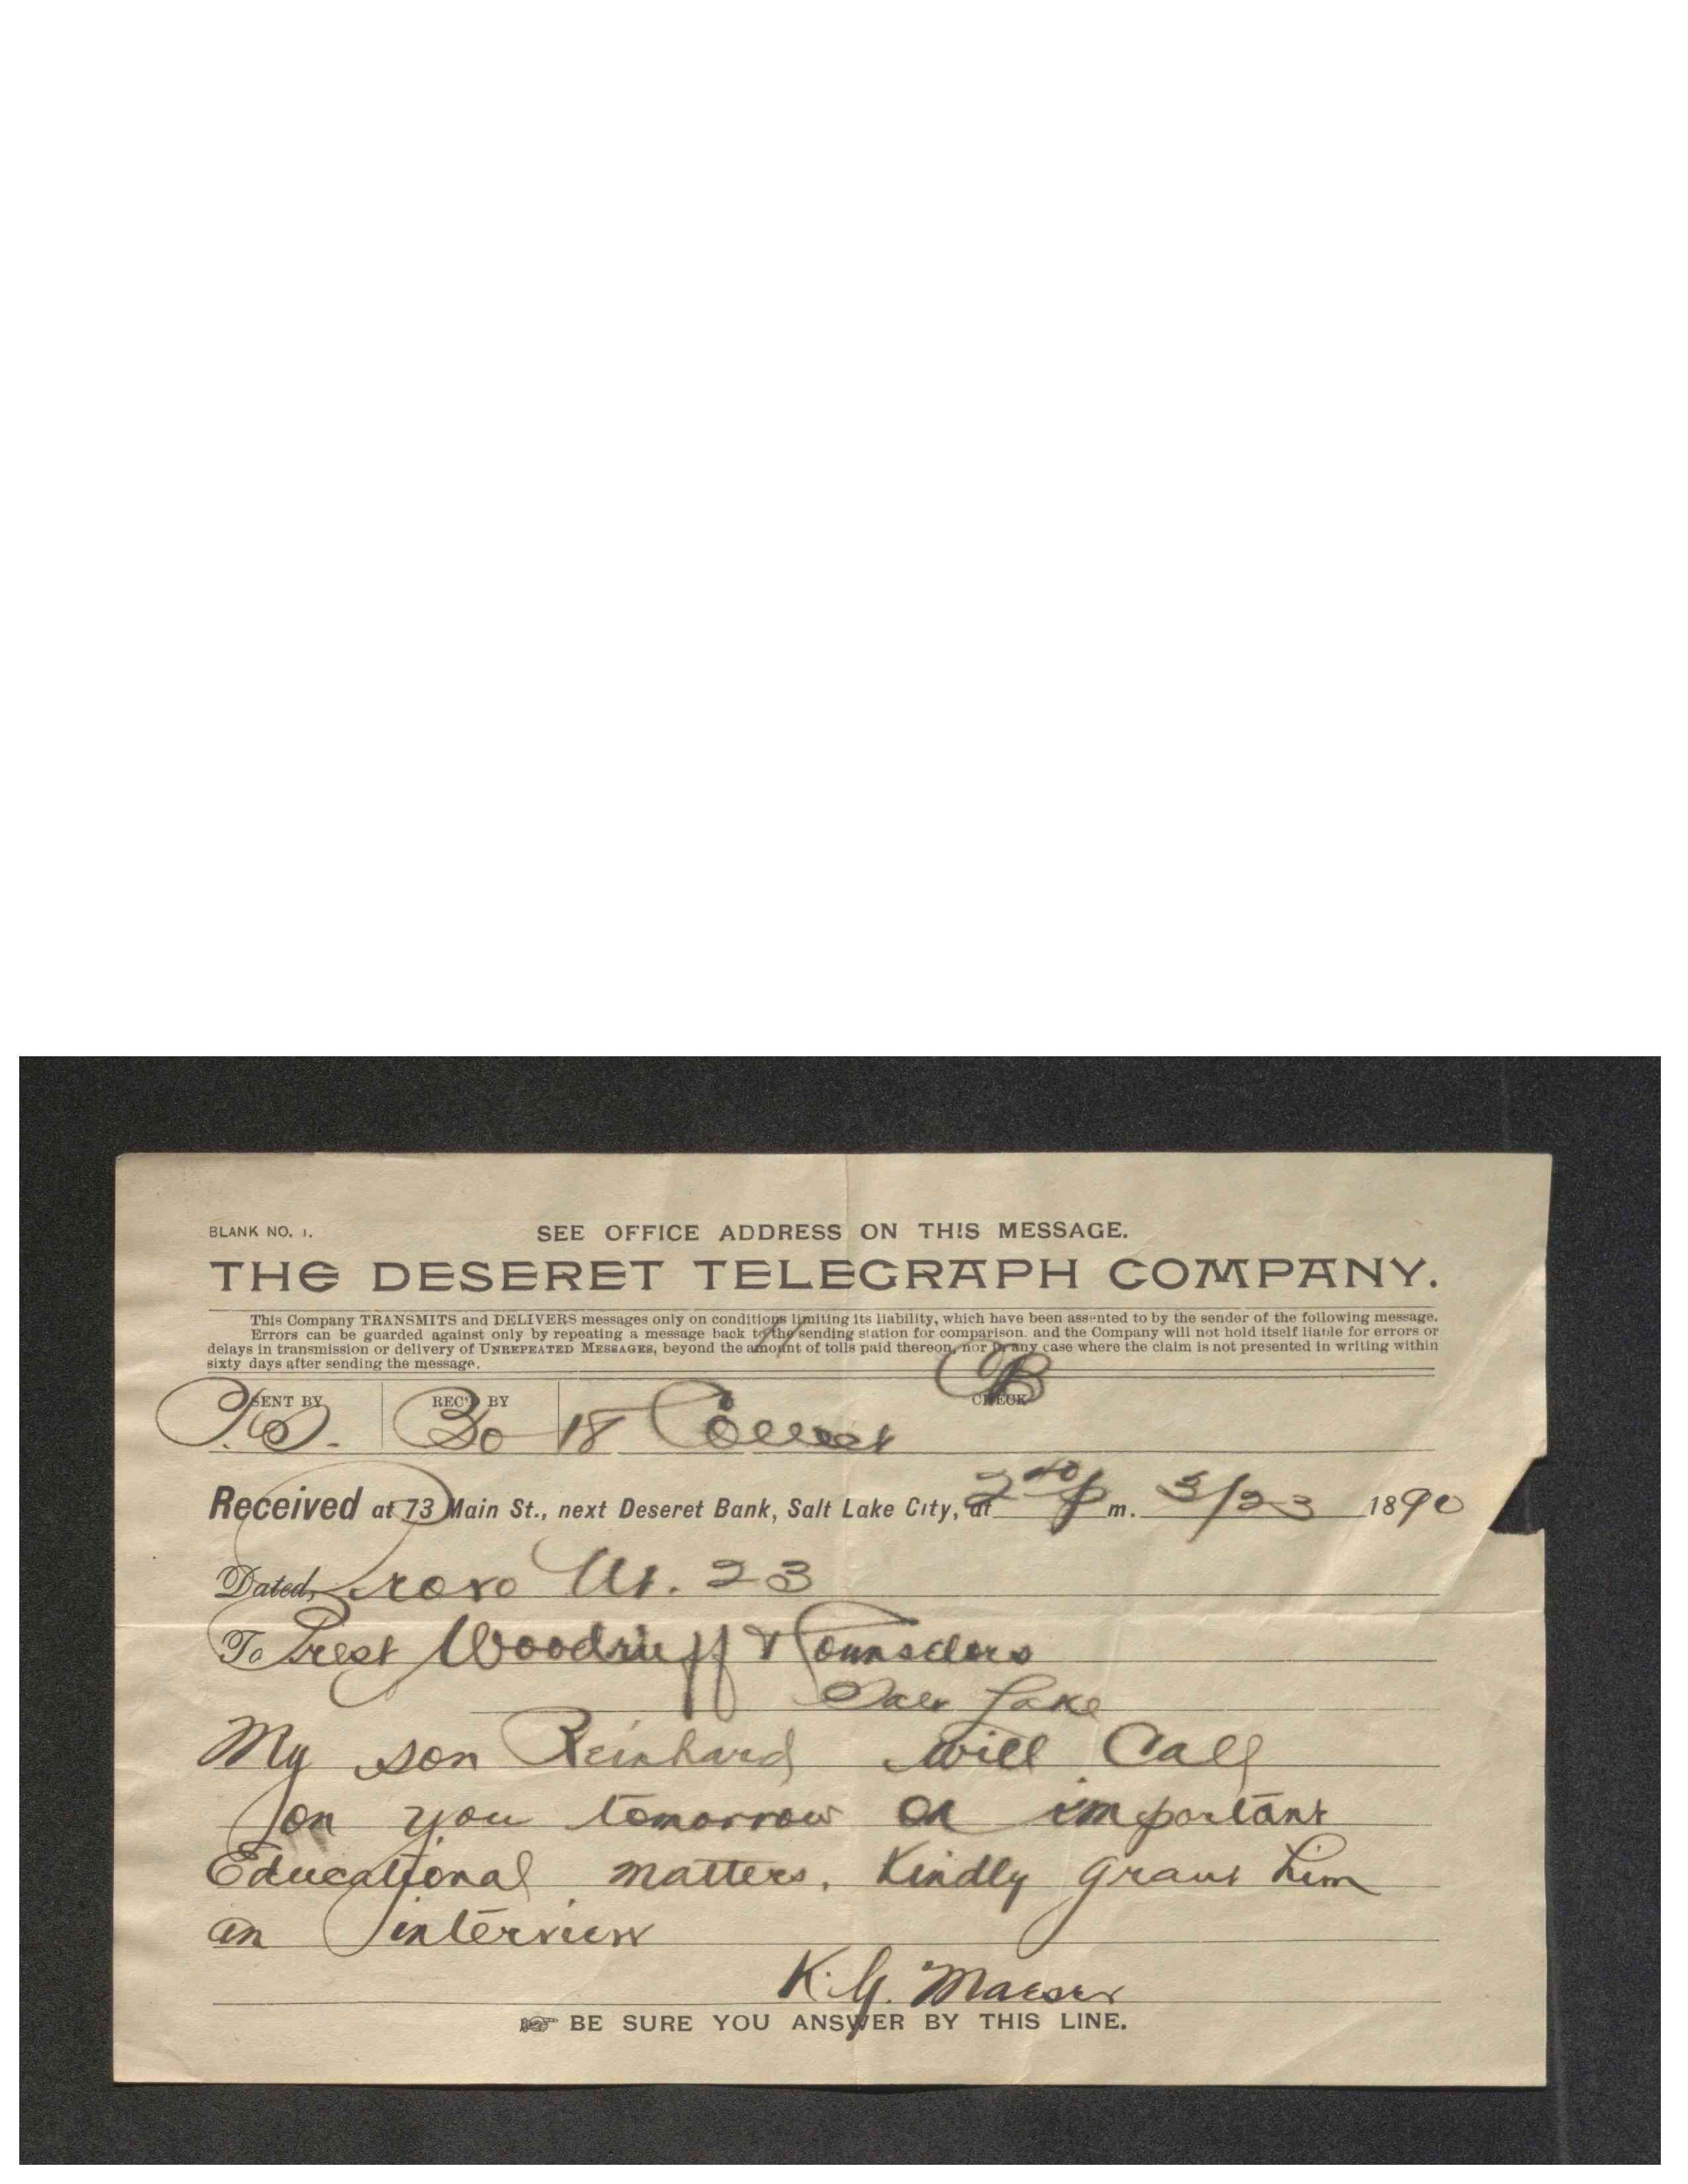 BLANK NO. 1.
SEE OFFICE ADDRESS ON THIS MESSAGE.
THE DESERET TELEGRAPH COMPANY.
This Company TRANSMITS and DELIVERS messages only on conditions limiting its liability, which have been assented to by the sender of the following message.
Errors can be guarded against only by repeating a message back to the sending station for comparison. and the Company will not hold itself liable for errors or
delays in transmission or delivery of UNREPEATED MESSAGES, beyond the amount of tolls paid thereon, nor in any case where the claim is not presented in writing within
sixty days after sending the message.
SENT BY REC'D BY CHECK
18 Collect
Received at 73 Main St., next Deseret Bank, Salt Lake City, at 2 40 p m. 3/23 1890
Dated, Provo Ut. 23
To Prest Woodruff & Counselors
Salt Lake
My son Reinhard will Call
on you tomorrow on important
Educational matters. Kindly grant him
an interview
K. G. Maeser
BE SURE YOU ANSWER BY THIS LINE.